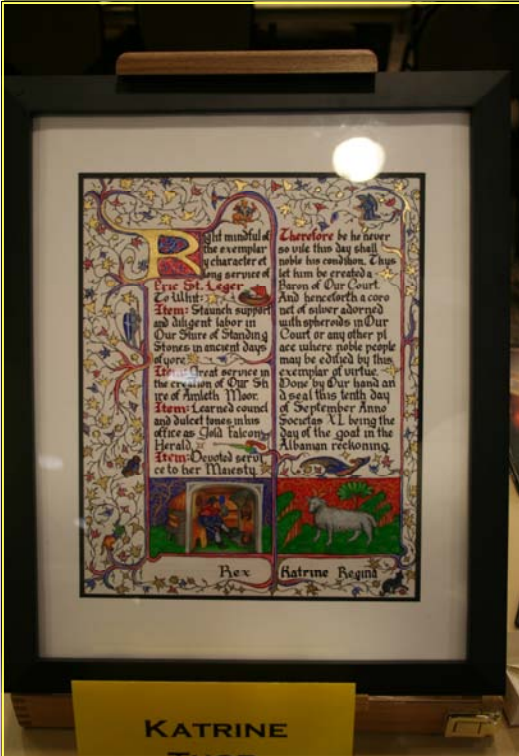 Right mindful of
the exemplar
y character et
long service of
Eric St. Leger
To Whit:
Item: Staunch support
and diligent labor in
Our Shire of Standing
Stones in ancient days
of yore
Item: Great service in
the creation of Our Sh
ire of Amleth Moor.
Item: Learned councl
and dulcet tones in his
office as Gold Falcon
Herald
Item: Devoted servi
ce to her Majesty
Therefore be he never
so vile this day shall
noble his condition. Thus
let him be created a
Baron of Our Court.
And henceforth a coro
net of silver adorned
with spheroids in Our
Court or any other pl
ace where noble people
may be edified by this
exemplar of virtue.
Done by Our hand an
d seal this tenth day
of September Anno
Societas XL being the
day of the goat in the
Albanian reckoning.
Rex
Katrine Regina
KATRINE